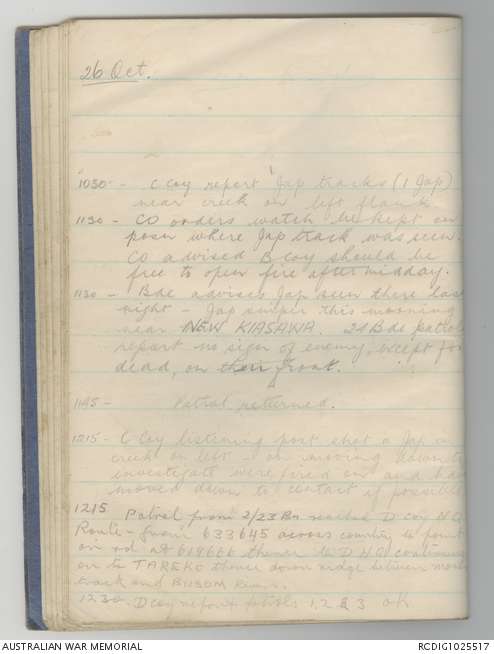 26 Oct.
1030 - C Coy report Jap tracks (1 Jap)
near creek on left flank
1130 - CO orders watch be kept on
posn where Jap track was seen.
CO advised B Coy should be
free to open fire after midday.
1130 - Bde advises Jap seen there last
night - Jap sniper this morning
near NEW KIASAWA. 24 Bde patrol
report no sign of enemy, except for
dead, on their front.
1145 - Patrol returned.
1215 - C Coy listening post shot a Jap in
creek on left - on moving down to
investigate were fired on and have
moved down to contact if possible
1215 Patrol from 2/23 Bn reached D Coy H.Q.
Route - from 633645 across country to point
on rd at 619666 thence to D H.Q continuing
on to TAREKO thence down ridge between main
track and BUSOM River.
1230 - D coy report patrols 1, 2 & 3 OK
AUSTRALIAN WAR MEMORIAL
RCDIG1025517